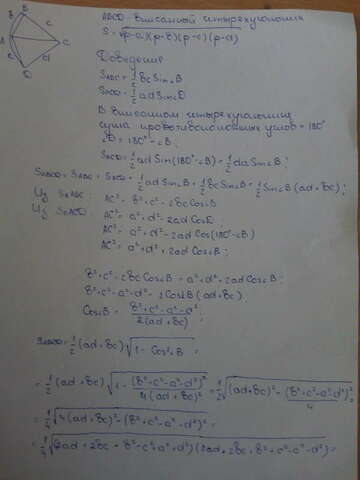 ABCD-вписанный четырехугольник
S = √(p-a)(p-b)(p-c)(p-d)
B
b
A
C
c
d
D
Доведение
S_ABC = 1/2 bc Sin∠B
S_ACD = 1/2 ad Sin∠D
В вписанном четырехугольнике
сума противоположных углов = 180°
∠D = 180° - ∠B;
S_ACD = 1/2 ad Sin(180°-∠B) = 1/2 da Sin∠B;
S_ABCD = S_ABC + S_ACD = 1/2 ad Sin∠B + 1/2 bc Sin∠B = 1/2 Sin∠B (ad + bc);
Из S_ABC: AC² = b² + c² - 2bc Cos∠B
Из S_ACD: AC² = a² + d² - 2ad Cos∠D;
AC² = a² + d² - 2ad Cos(180°-∠B)
AC² = a² + d² + 2ad Cos∠B
b² + c² - 2bc Cos∠B = a² + d² + 2ad Cos∠B;
b² + c² - a² - d² = 2Cos∠B (ad + bc)
Cos∠B = (b² + c² - a² - d²) / 2(ad + bc);
S_ABCD = 1/2 (ad + bc) √(1 - Cos²∠B) =
= 1/2 (ad + bc) √(1 - (b² + c² - a² - d²)² / 4(ad + bc)²) = 1/2 √((ad + bc)² - (b² + c² - a² - d²)² / 4) =
= 1/4 √(4(ad + bc)² - (b² + c² - a² - d²)²) =
= 1/4 √((2ad + 2bc + b² - c² + a² + d²)(2ad + 2bc + b² + c² - a² - d²)) =